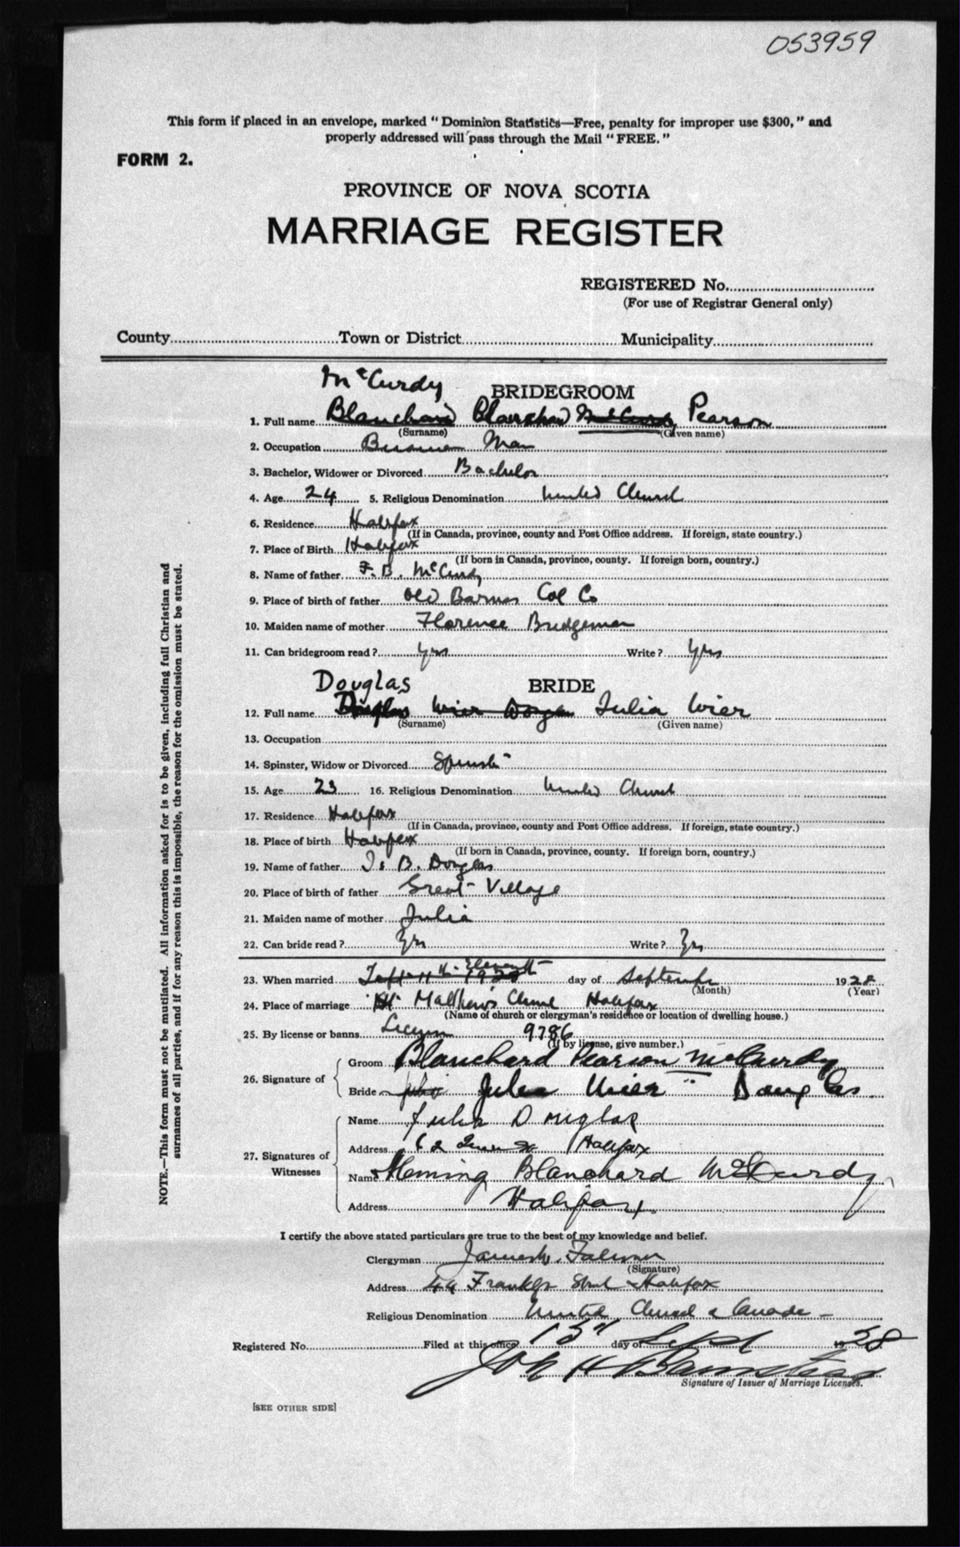 053959
This form if placed in an envelope, marked "Dominion Statistics—Free, penalty for improper use $300," and
properly addressed will pass through the Mail "FREE."
FORM 2.
PROVINCE OF NOVA SCOTIA
MARRIAGE REGISTER
REGISTERED No.
(For use of Registrar General only)
County Town or District Municipality
McCurdy
BRIDEGROOM
1. Full name Blanchard Blanchard McCurdy Pearson
(Surname) (Given name)
2. Occupation Business Man
3. Bachelor, Widower or Divorced Bachelor
4. Age 24 5. Religious Denomination United Church
6. Residence Halifax
(If in Canada, province, county and Post Office address. If foreign, state country.)
7. Place of Birth Halifax
(If born in Canada, province, county. If foreign born, country.)
8. Name of father F. B. McCurdy
9. Place of birth of father Old Barns Col Co
10. Maiden name of mother Florence Bridgeman
11. Can bridegroom read? Yes Write? Yes
Douglas
BRIDE
12. Full name Douglas Wier Douglas Julia Wier
(Surname) (Given name)
13. Occupation
14. Spinster, Widow or Divorced Spinster
15. Age 23 16. Religious Denomination United Church
17. Residence Halifax
(If in Canada, province, county and Post Office address. If foreign, state country.)
18. Place of birth Halifax
(If born in Canada, province, county. If foreign born, country.)
19. Name of father B. Douglas
20. Place of birth of father Great Village
21. Maiden name of mother Julia
22. Can bride read? Yes Write? Yes
23. When married Eleventh 1928 day of September 1928
(Month) (Year)
24. Place of marriage St Matthew's Church Halifax
(Name of church or clergyman's residence or location of dwelling house.)
25. By license or banns License 9786
(If by license, give number.)
26. Signature of
Groom Blanchard Pearson McCurdy
Bride Julia Wier Douglas
27. Signatures of Witnesses
Name Julia Douglas
Address Halifax
Name Fleming Blanchard McCurdy
Address Halifax
I certify the above stated particulars are true to the best of my knowledge and belief.
Clergyman
(Signature)
Address 44 Franklyn Street Halifax
Religious Denomination United Church of Canada
Registered No. Filed at this office 13th day of Sept 1928
Signature of Issuer of Marriage Licenses.
[SEE OTHER SIDE]
NOTE.—This form must not be mutilated. All information asked for is to be given, including full Christian and
surnames of all parties, and if for any reason this is impossible, the reason for the omission must be stated.